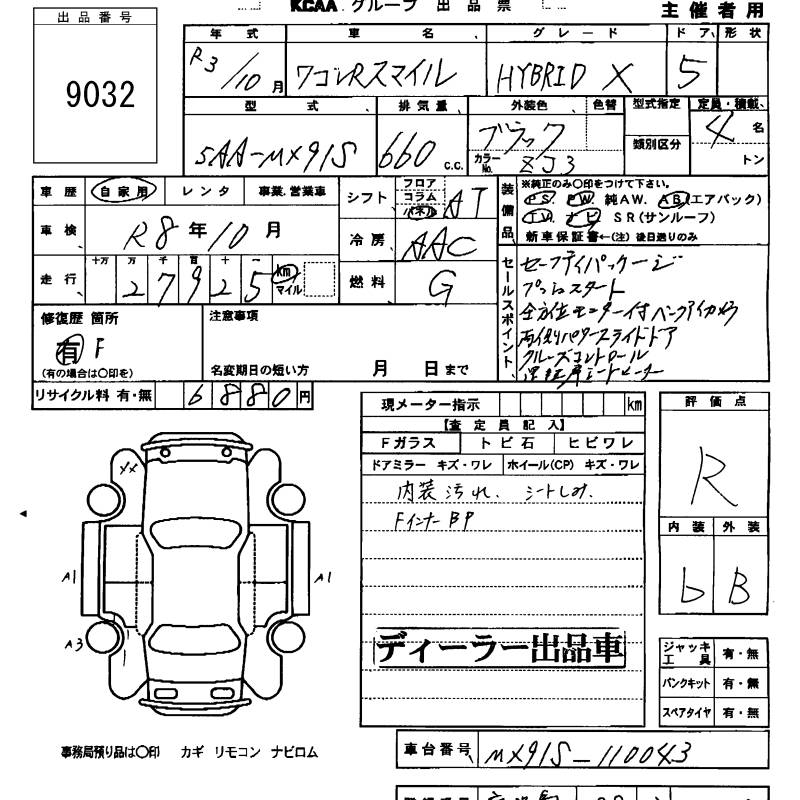 KCAA グループ 出品票
主催者用
出品番号
9032
年式 車名 グレード ドア 形状
R3/10月 ワゴンRスマイル HYBRID X 5
型式 排気量 外装色 色替 型式指定 定員・積載
類別区分
5AA-MX91S 660 C.C. ブラック カラーNo. ZJ3 4名
トン
車歴 自家用 レンタ 事業.営業車
車検 R8年10月
走行 十万 万 千 百 十 一
27925 km マイル
シフト フロア コラム AT
冷房 AAC
燃料 G
装備品 ※純正のみ〇印をつけて下さい。
PS. PW. 純AW. AB(エアバック)
TV. ナビ SR(サンルーフ)
新車保証書←(注) 後日送りのみ
セールスポイント
セーフティパッケージ
プッシュスタート
全方位モニター付
両側パワースライドドア
クルーズコントロール
運転席シートヒーター
修復歴 箇所
有 F
(有の場合は〇印を)
注意事項
名変期日の短い方 月 日まで
リサイクル料 有・無 6880円
現メーター指示 km
【査定員記入】
Fガラス トビ石 ヒビワレ
ドアミラー キズ・ワレ ホイール(CP) キズ・ワレ
内装汚れ. シートしみ.
Fインナー BP
ディーラー出品車
評価点
R
内装 外装
b B
ジャッキ工具 有・無
パンクキット 有・無
スペアタイヤ 有・無
XX
A1 A1
A3
事務局預り品は〇印 カギ リモコン ナビロム
車台番号 MX91S-110043